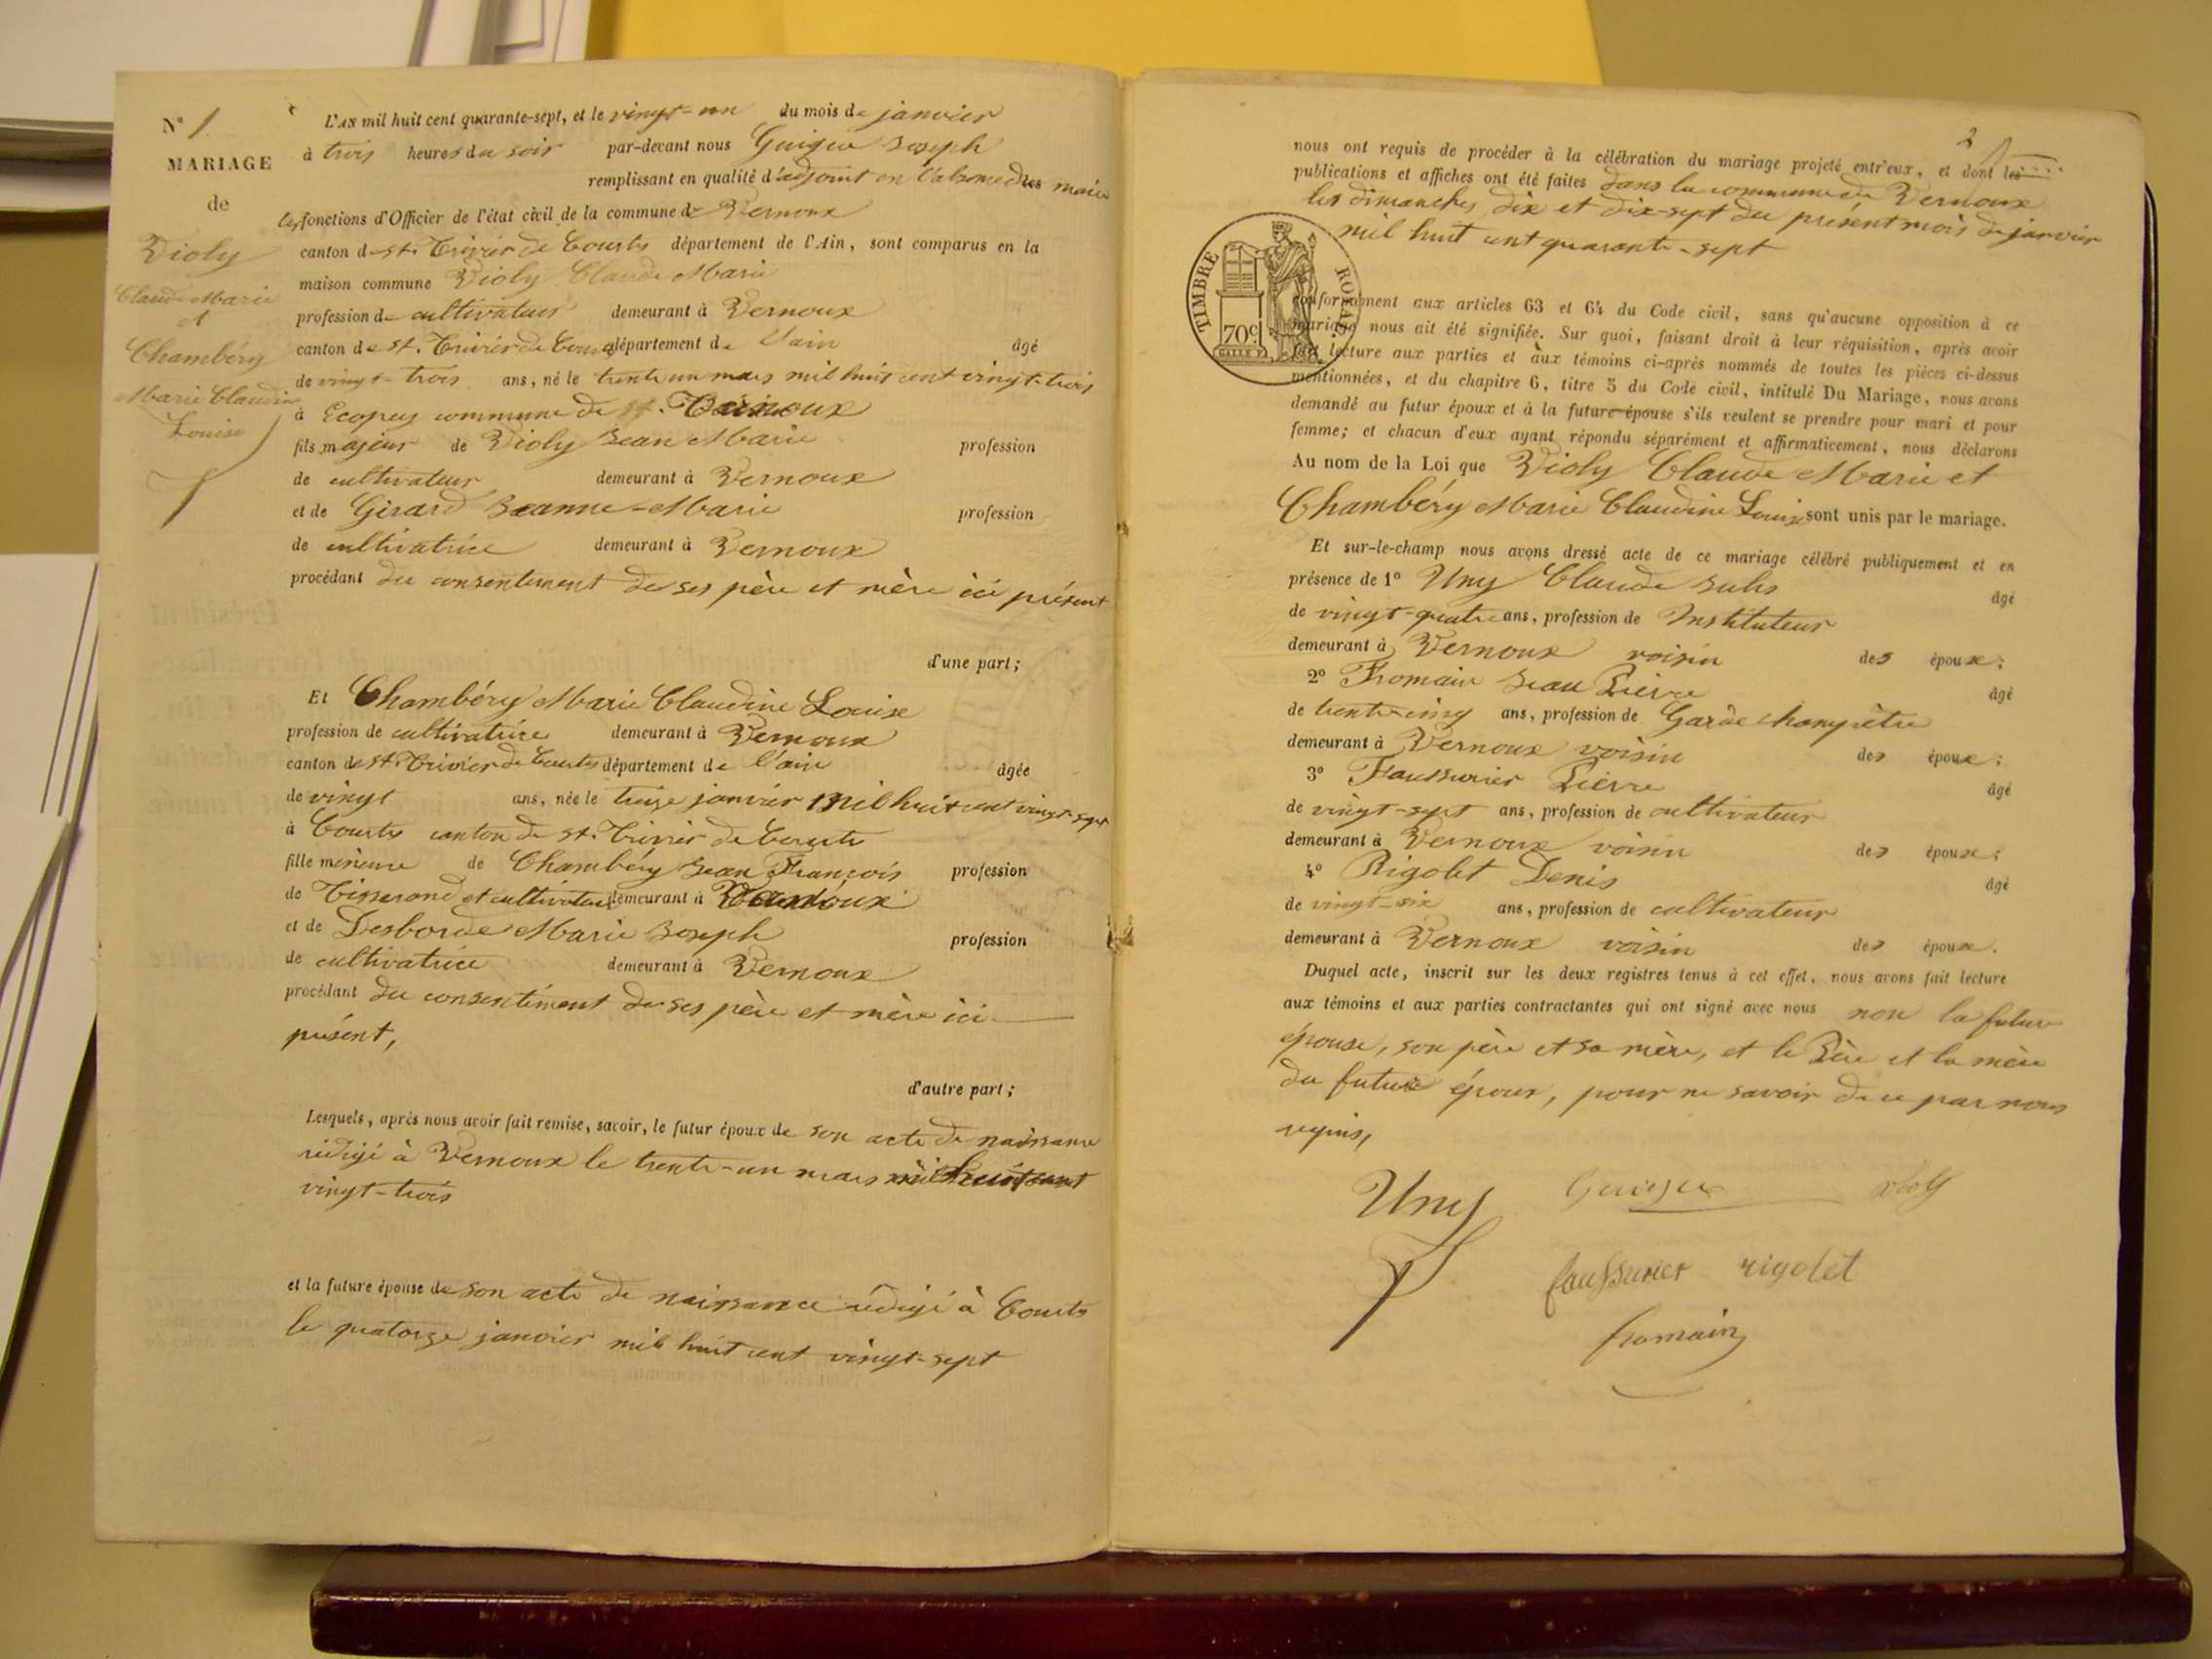 N° 1
MARIAGE
de
Violy
Claude Marie
et
Chambéry
Marie Claudine
Louise
L'AN mil huit cent quarante-sept, et le vingt-un du mois de janvier
à trois heures du soir par-devant nous Guigue Joseph
remplissant en qualité d'adjoint en l'absence du maire
les fonctions d'Officier de l'état civil de la commune de Vernoux
canton de St. Trivier de Courtes département de l'Ain, sont comparus en la
maison commune Violy Claude Marie
profession de cultivateur demeurant à Vernoux
canton de St. Trivier de Courtes département de l'ain âgé
de vingt-trois ans, né le trente un mars mil huit cent vingt-trois
à Ecopey commune de Vernoux
fils majeur de Violy Jean Marie profession
de cultivateur demeurant à Vernoux
et de Girard Jeanne-Marie profession
de cultivatrice demeurant à Vernoux
procédant du consentement de ses père et mère ici présent
d'une part;
Et Chambéry Marie Claudine Louise
profession de cultivatrice demeurant à Vernoux
canton de St. Trivier de Courtes département de l'ain âgée
de vingt ans, née le treize janvier mil huit cent vingt sept
à Courtes canton de St. Trivier de Courtes
fille mineure de Chambéry Jean François profession
de Tisserand et cultivateur demeurant à Vernoux
et de Desborde Marie Joseph profession
de cultivatrice demeurant à Vernoux
procédant du consentement de ses père et mère ici
présent,
d'autre part;
Lesquels, après nous avoir fait remise, savoir, le futur époux de son acte de naissance
rédigé à Vernoux le trente-un mars mil huit cent
vingt-trois
et la future épouse de son acte de naissance rédigé à Courtes
le quatorze janvier mil huit cent vingt-sept
2
nous ont requis de procéder à la célébration du mariage projeté entr'eux, et dont les
publications et affiches ont été faites dans la commune de Vernoux
les dimanches dix et dix-sept du présent mois de janvier
mil huit cent quarante-sept
TIMBRE ROYAL
70c
conformément aux articles 63 et 64 du Code civil, sans qu'aucune opposition à ce
mariage nous ait été signifiée. Sur quoi, faisant droit à leur réquisition, après avoir
fait lecture aux parties et aux témoins ci-après nommés de toutes les pièces ci-dessus
mentionnées, et du chapitre 6, titre 5 du Code civil, intitulé Du Mariage, nous avons
demandé au futur époux et à la future épouse s'ils veulent se prendre pour mari et pour
femme; et chacun d'eux ayant répondu séparément et affirmativement, nous déclarons
Au nom de la Loi que Violy Claude Marie et
Chambéry Marie Claudine Louise sont unis par le mariage.
Et sur-le-champ nous avons dressé acte de ce mariage célébré publiquement et en
présence de 1° Uny Claude Jules âgé
de vingt-quatre ans, profession de Instituteur
demeurant à Vernoux voisin des époux;
2° Fromain Jean Pierre âgé
de trente-cinq ans, profession de Garde champêtre
demeurant à Vernoux voisin des époux;
3° Faussurier Pierre âgé
de vingt-sept ans, profession de cultivateur
demeurant à Vernoux voisin des époux;
4° Rigolet Denis âgé
de vingt-six ans, profession de cultivateur
demeurant à Vernoux voisin des époux.
Duquel acte, inscrit sur les deux registres tenus à cet effet, nous avons fait lecture
aux témoins et aux parties contractantes qui ont signé avec nous non la future
épouse, son père et sa mère, et le Père et la mère
du futur époux, pour ne savoir de ce par nous
requis,
Uny Guigue Violy
faussurier rigolet
fromain